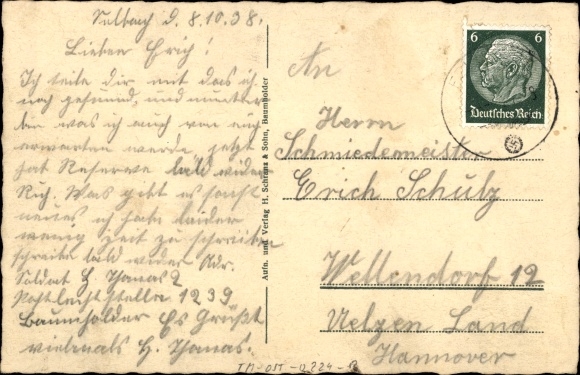 Sulbach d. 8.10.38.
Lieber Erich!
Ich teile dir mit das ich
noch gesund, und munter
bin was ich auch von euch
erwarten werde, jetzt
hat Reserve bald wider
Ruh. Was gibt es sonst
neues ich habe leider
wenig Zeit zu schreiben
schreibe bald wider Adr.
Soldat H. Thomas 2
Postleitstelle 1239
Baumholder Es Grüßt
vielmals H. Thomas.
Aufn. und Verlag H. Schramm & Sohn, Baumholder
6 6
Deutsches Reich
An
Herrn
Schmiedemeister
Erich Schulz
Wellendorf 12
Uelzen Land
Hannover
TM-OST-0224-B